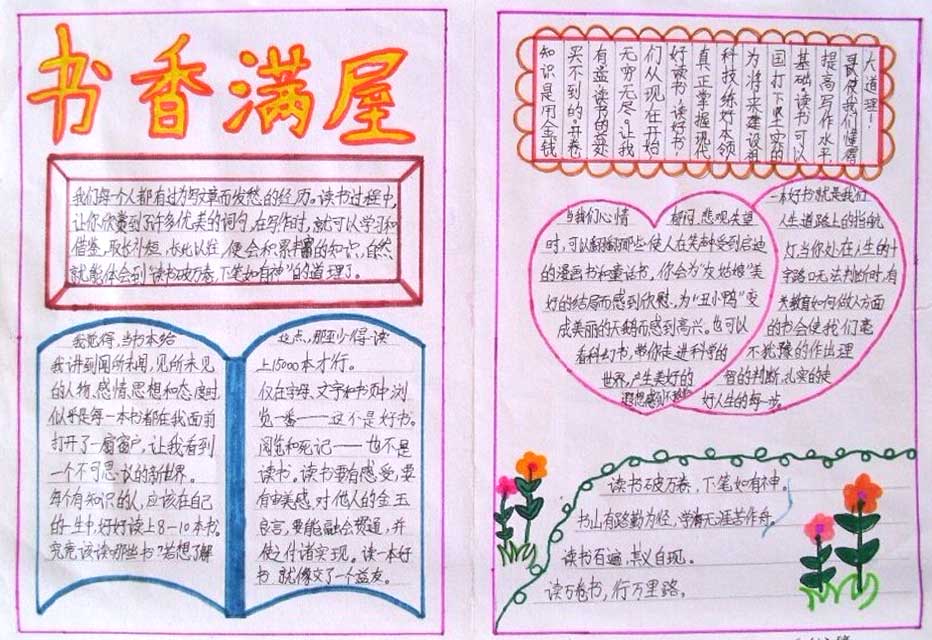 书香满屋
我们每一个人都有过为写文章而发愁的经历。读书过程中,
让你欣赏到了许多优美的词句,在写作时,就可以学习和
借鉴,取长补短,长此以往,便会积累丰富的知识,自然
就能体会到“读书破万卷,下笔如有神”的道理了。
我觉得,当书本给
我讲到闻所未闻,见所未见
的人物、感情、思想和态度时,
似乎是每一本书都在我面前
打开了一扇窗户,让我看到
一个不可思议的新世界。
每个有知识的人,应该在自己
的一生中,好好读上8—10本书。
究竟该读哪些书?若想了解
这点,那至少得读
上15000本才行。
仅在字母、文字和书页中浏
览一番——这不是好书。
阅览和死记——也不是
读书。读书要有感受,要
有审美感,对他人的金玉
良言,要能融会贯通,并
使之付诸实现。读一本好
书,就像交了一个益友。
知识是用金钱
买不到的。开卷
有益,读书的获
无穷无尽。让我
们从现在开始
好读书,读好书,
真正掌握现代
科技,练好本领
为将来建设祖
国打下坚实的
基础。读书可以
提高写作水平,
使我们懂得
大道理!
当我们心情 郁闷、悲观失望
时,可以翻翻那些使人在笑声中受到启迪
的漫画书和童话书。你会为“灰姑娘”美
好的结局而感到欣慰,为“丑小鸭”变
成美丽的天鹅而感到高兴。也可以
看科幻书,带你走进科学的
世界,产生美好的
遐想
一本好书就是我们
人生道路上的指航
灯。当你处在人生的十
字路口无法判断时,有
关教育如何做人方面
的书会使我们毫
不犹豫的作出理
智的判断,扎实的走
好人生的每一步。
读书破万卷,下笔如有神。
书山有路勤为径,学海无涯苦作舟。
读书百遍,其义自现。
读万卷书,行万里路。